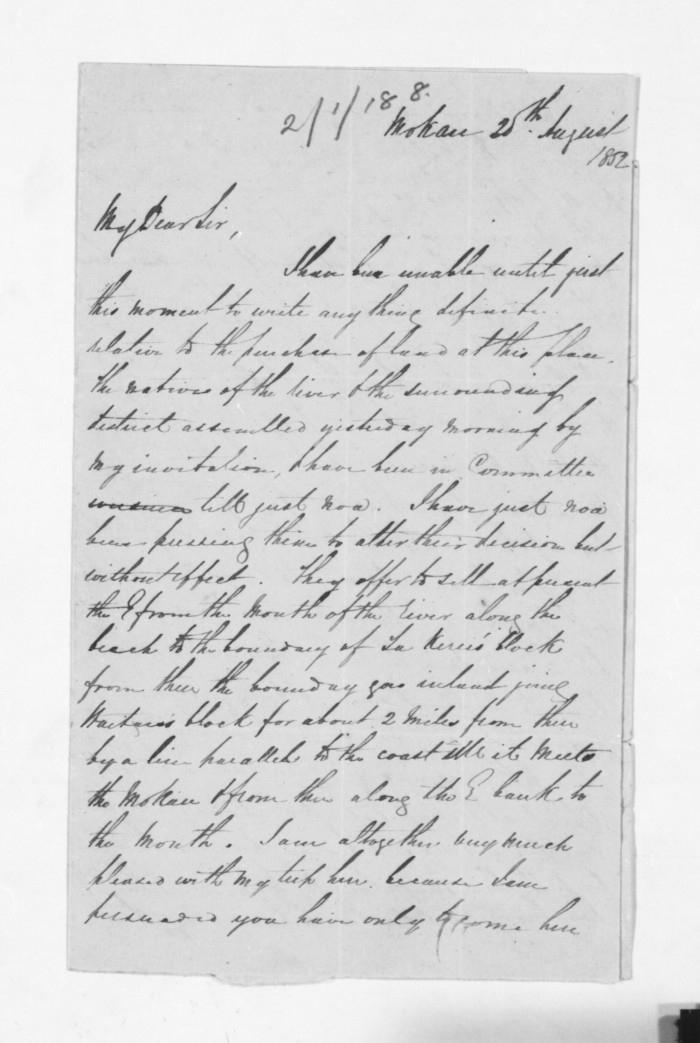 2/1/188.
Mokau 20th August
1852
My Dear Sir,
I have been unable until just
this moment to write any thing definite
relative to the purchase of land at this place.
The natives of the river & the surrounding
district assembled yesterday morning by
my invitation, & have been in Committee
till just now. I have just now
been pressing them to alter their decision but
without effect. They offer to sell at present
the E from the Mouth of the river along the
beach to the boundary of Ta Kerei's block
from thence the boundary goes inland joining
block for about 2 miles from thence
by a line parallel to the coast till it meets
the Mokau & from thence along the E bank to
the Mouth. I am altogether very much
pleased with my trip here because I am
persuaded you have only to come here